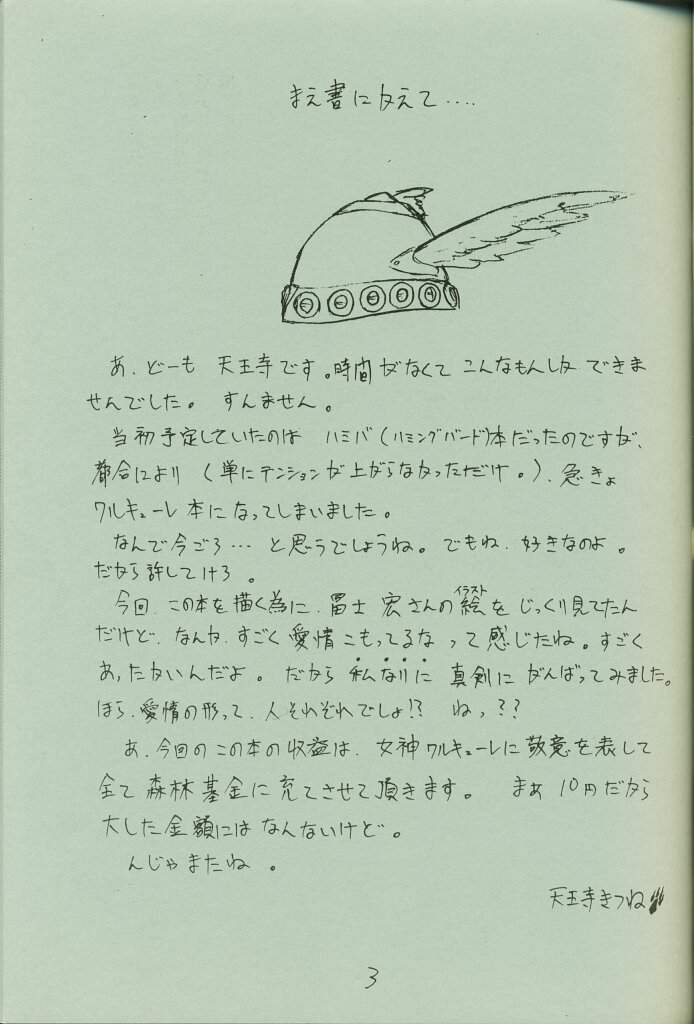 まえ書にかえて‥‥
あ、どーも 天王寺です。時間がなくて こんなもんしか できま
せんでした。 すんません。
当初予定していたのは ハミバ(ハミングバード)本だったのですが、
都合により (単にテンションが上がらなかっただけ。)、急きょ
ワルキューレ 本になってしまいました。
なんで今ごろ… と思うでしょうね。でもね、好きなのよ。
だから許してけろ。
今回、この本を描く為に、冨士 宏さんの絵をじっくり見てたん
イラスト
だけど、なんか、すごく 愛情こもってるな って感じたね。すごく
あったかいんだよ。 だから 私なりに 真剣に がんばってみました。
ほら、愛情の形って、人それぞれでしょ!? ねっ??
あ、今回のこの本の収益は、女神ワルキューレに敬意を表して
全て 森林基金に充てさせて頂きます。 まぁ 10円だから
大した金額にはなんないけど。
んじゃまたね。
天王寺きつね
3